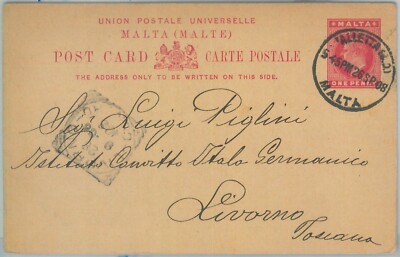 UNION POSTALE UNIVERSELLE
MALTA (MALTE)
POST CARD CARTE POSTALE
THE ADDRESS ONLY TO BE WRITTEN ON THIS SIDE.
MALTA
ONE PENNY
VALLETTA
5-45PM 26 SP 08
MALTA
Sig. Luigi Piglini
Istituto Convitto Italo Germanico
Livorno
Toscana